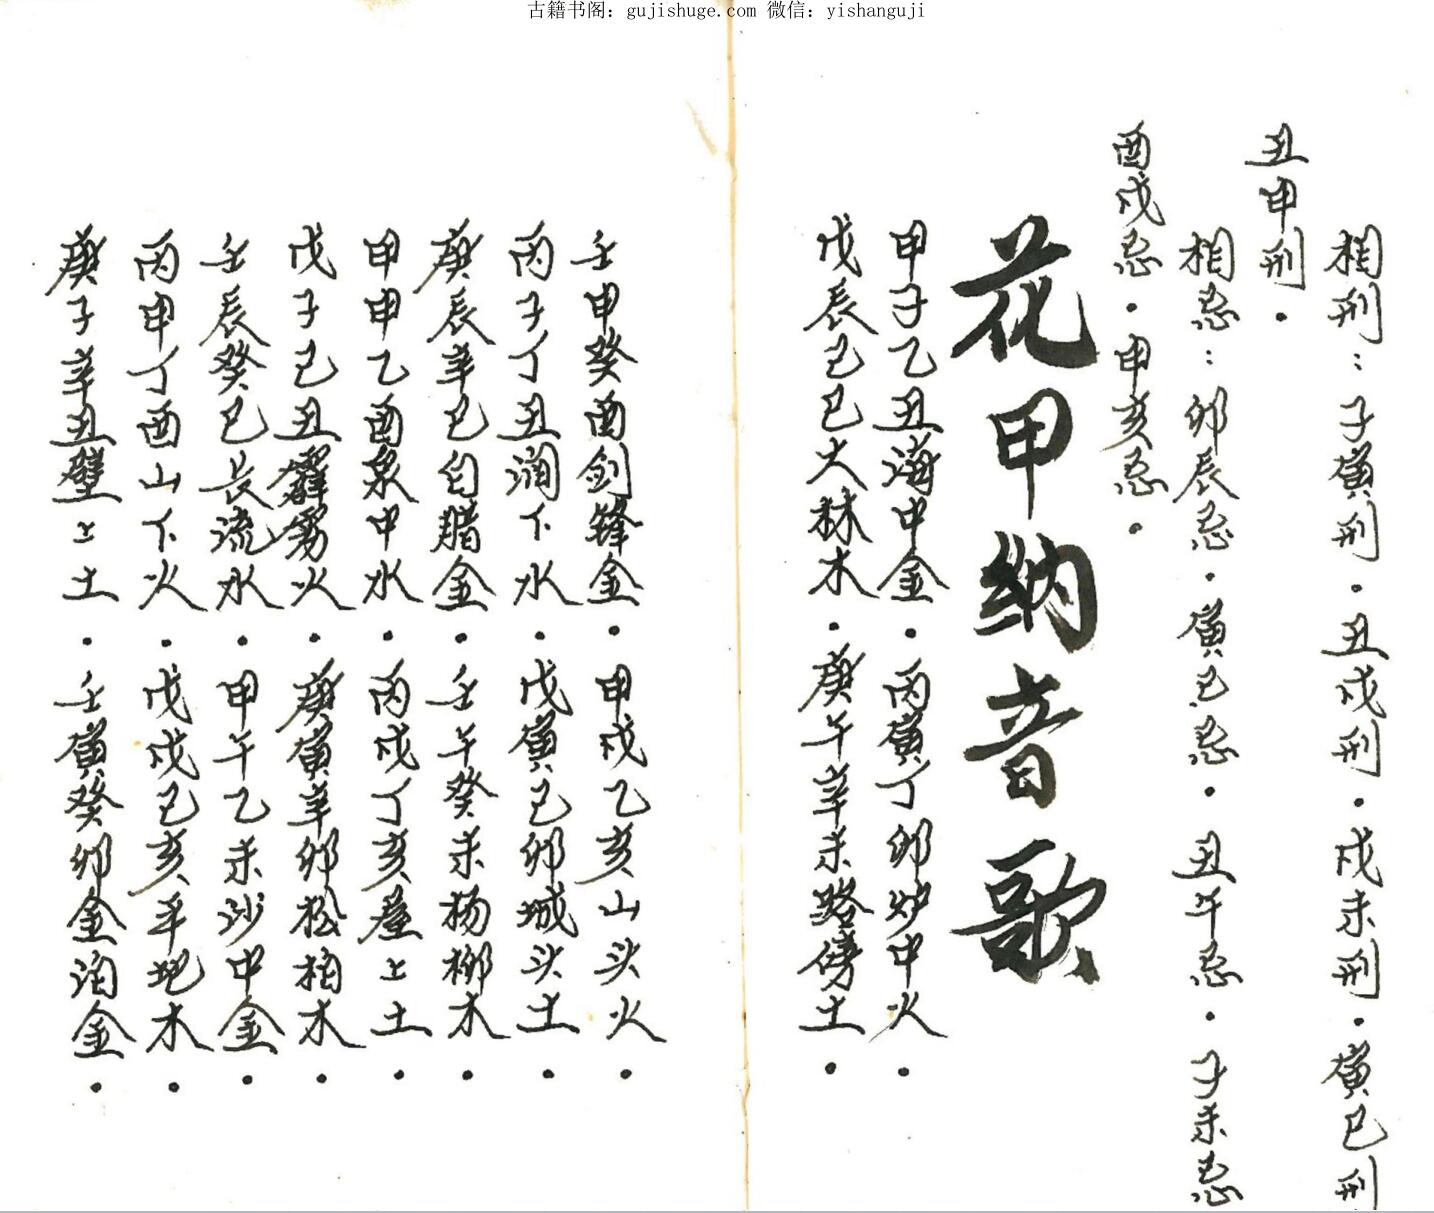 古籍书阁：gujishuge.com 微信：yishanguji
相刑：子寅刑·丑戌刑·戌未刑·寅巳刑
丑申刑·
相忌：卯辰忌·寅巳忌·丑午忌·子未忌
酉戌忌·申亥忌·
花甲纳音歌
甲子乙丑海中金·丙寅丁卯炉中火·
戊辰己巳大林木·庚午辛未路傍土·
壬申癸酉剑锋金·甲戌乙亥山头火·
丙子丁丑涧下水·戊寅己卯城头土·
庚辰辛巳白腊金·壬午癸未杨柳木·
甲申乙酉泉中水·丙戌丁亥屋上土·
戊子己丑霹雳火·庚寅辛卯松柏木·
壬辰癸巳长流水·甲午乙未沙中金·
丙申丁酉山下火·戊戌己亥平地木·
庚子辛丑壁上土·壬寅癸卯金泊金·